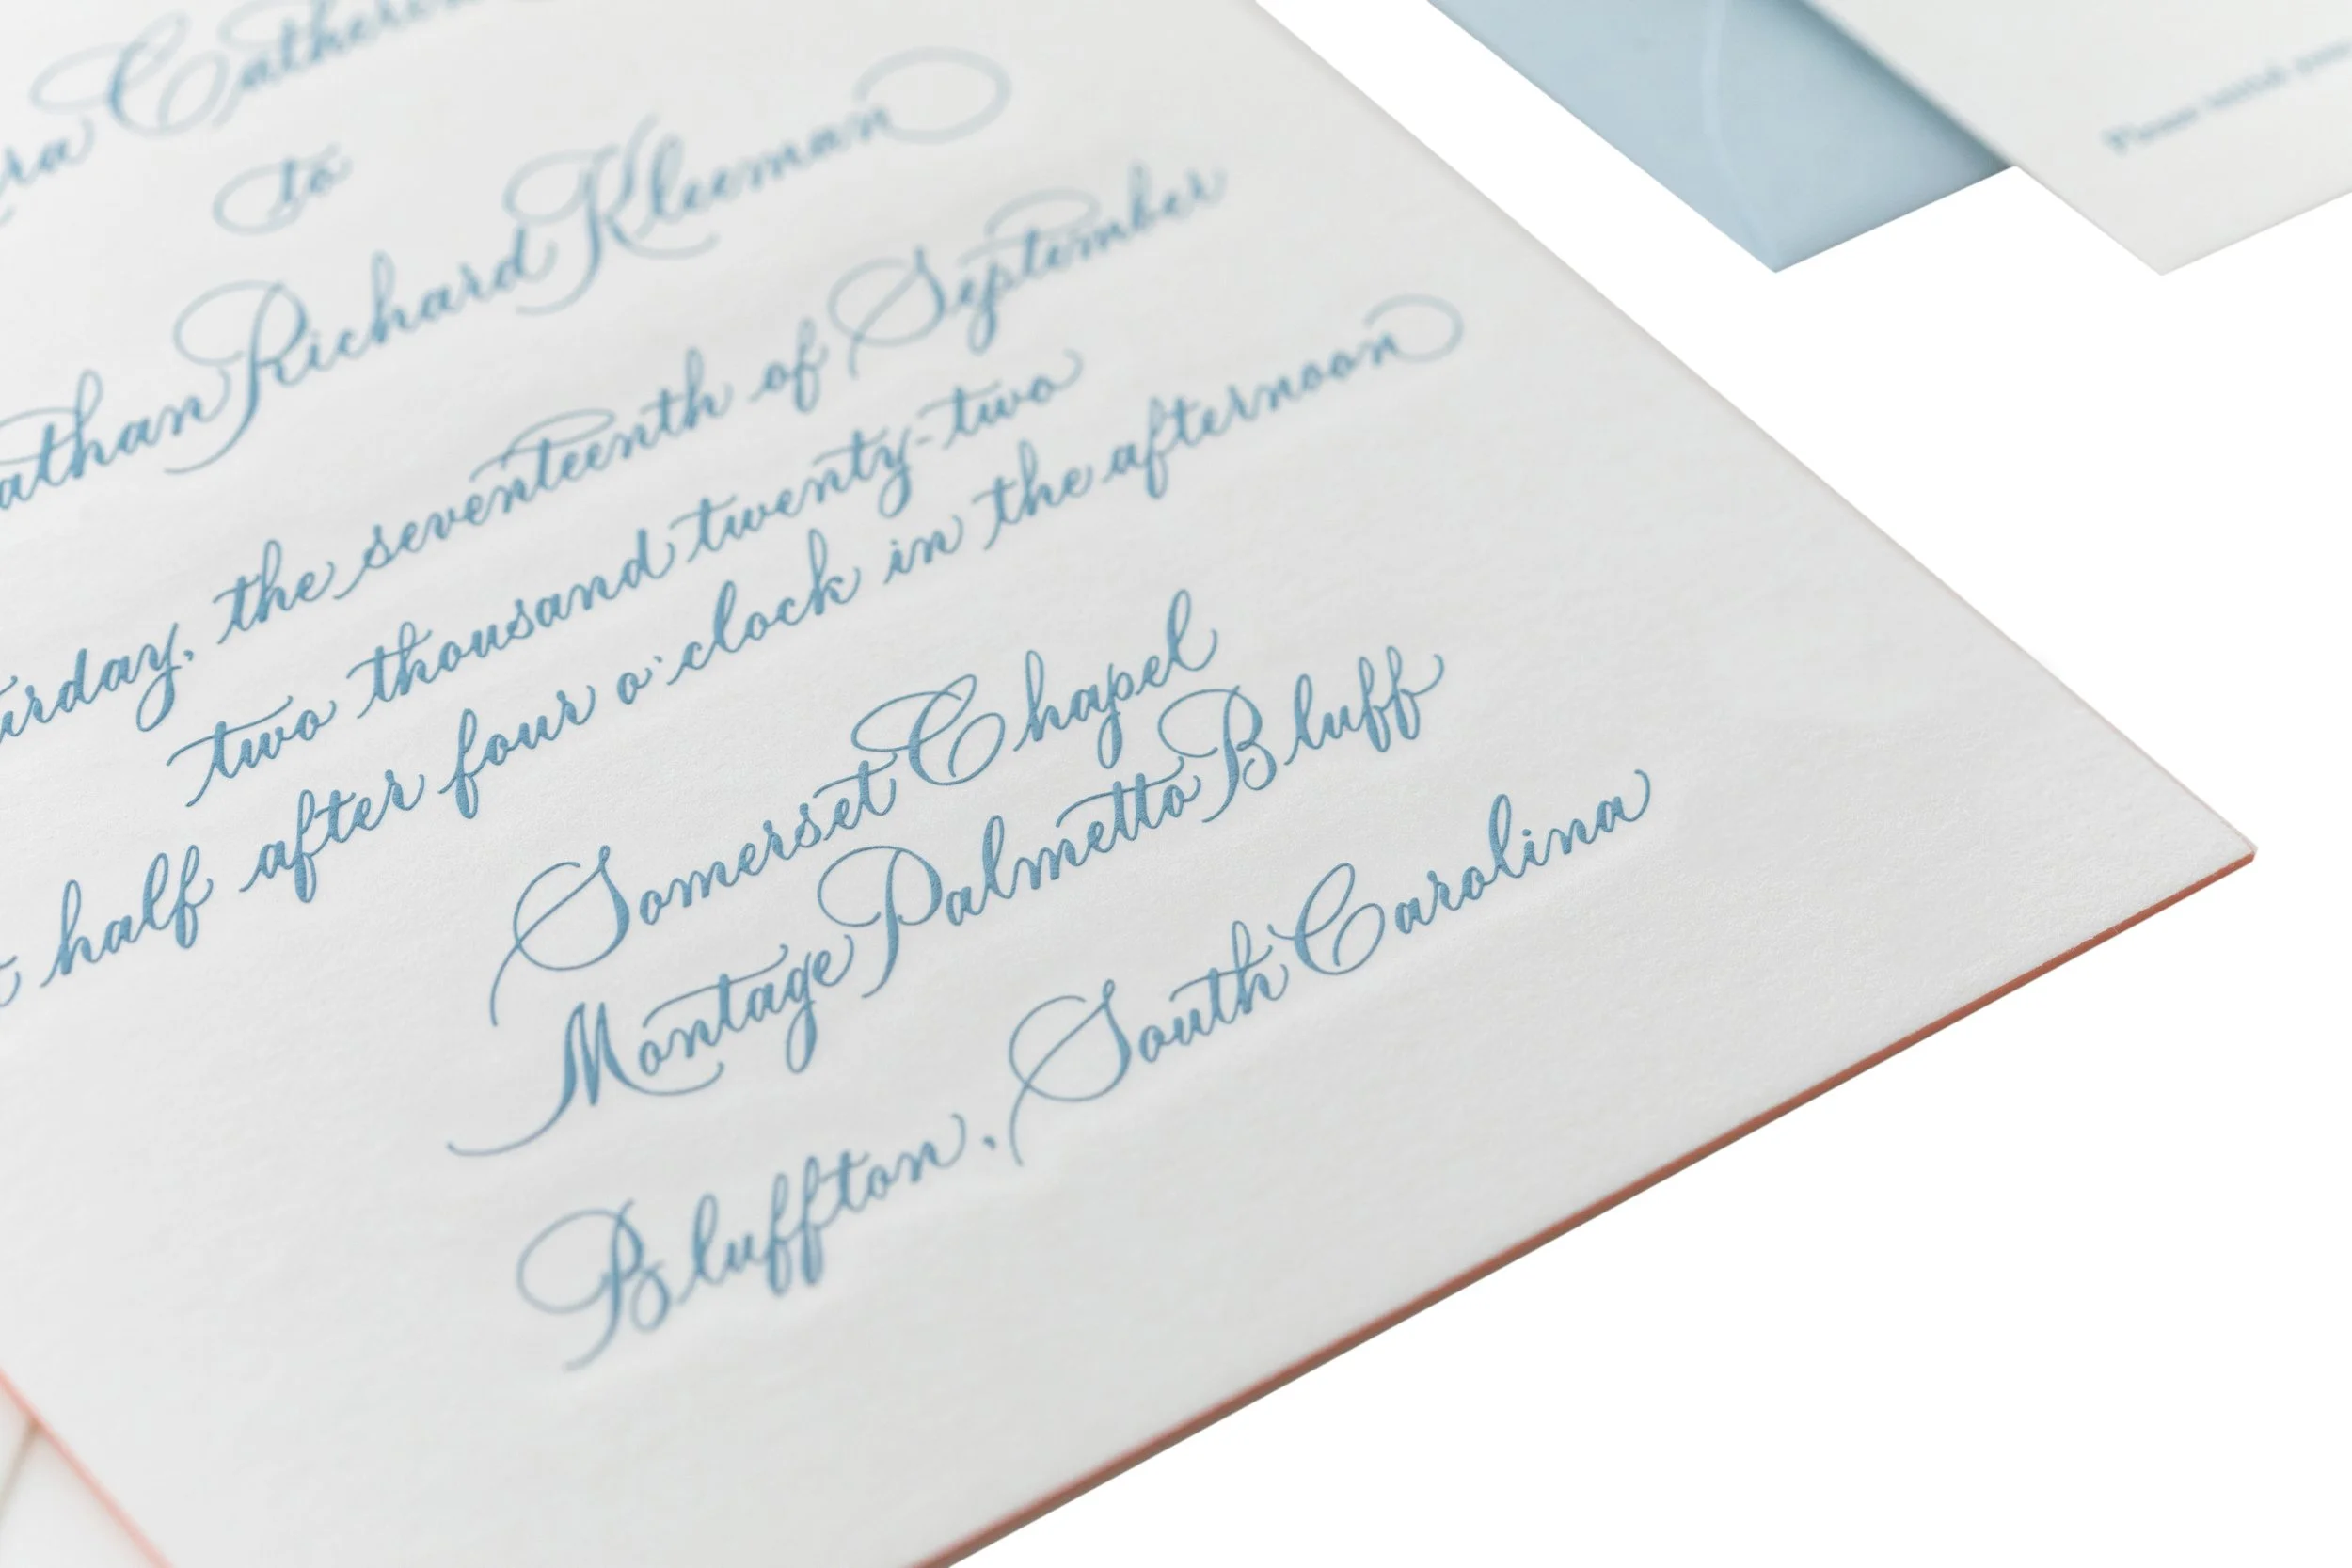 ra Catherin
to
athan Richard Kleeman
urday, the seventeenth of September
two thousand twenty-two
half after four o'clock in the afternoon
Somerset Chapel
Montage Palmetto Bluff
Bluffton, South Carolina